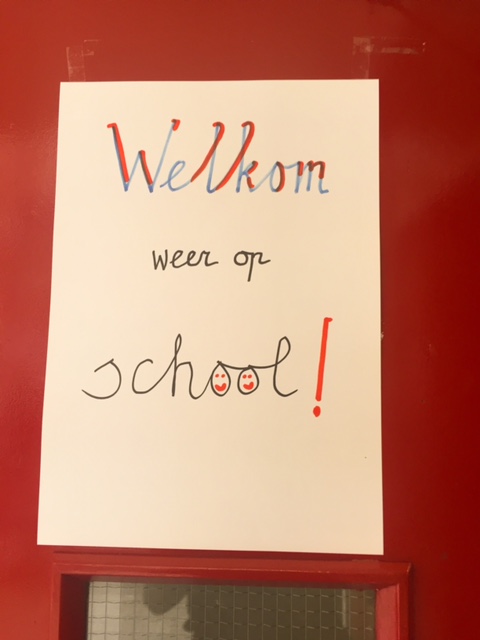 Welkom
weer op
school!